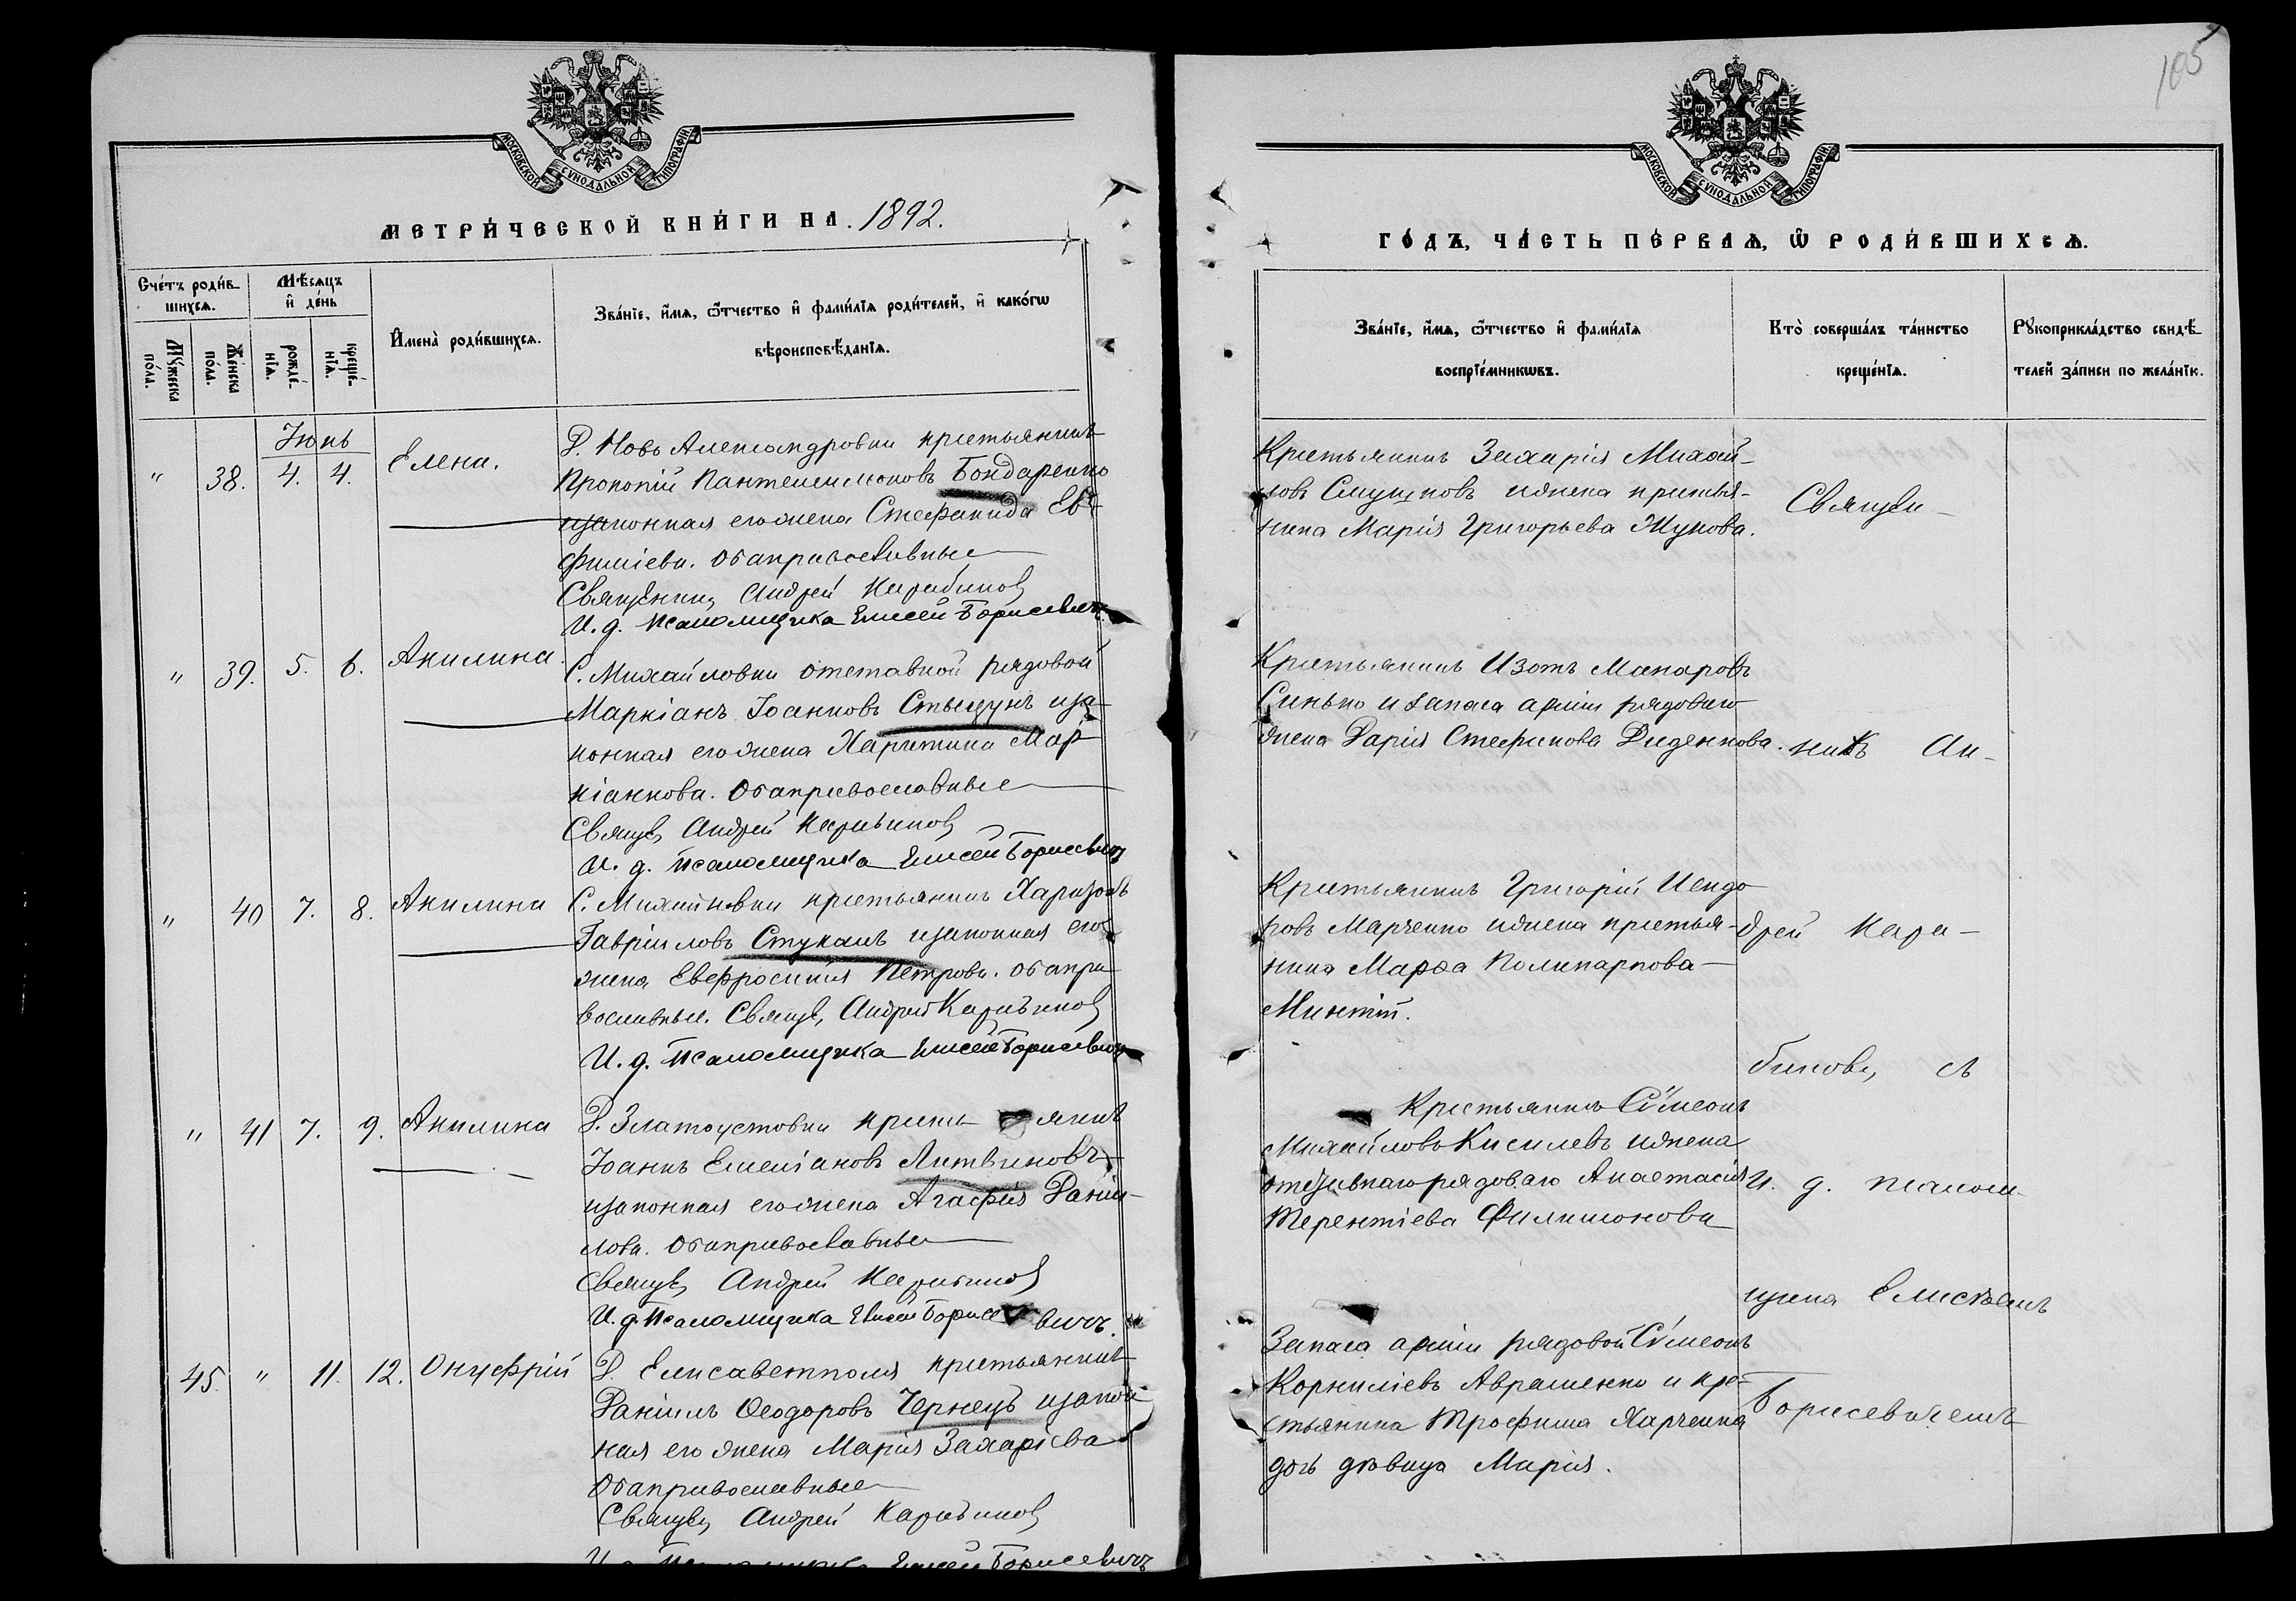 105
МОСКОВСКОЙ СУНОДАЛЬНОЙ ТИПОГРАФІИ
МОСКОВСКОЙ СУНОДАЛЬНОЙ ТИПОГРАФІИ
МЕТРИ́ЧЕСКОЙ КНИ́ГИ НА 1892.
ГО́ДЪ, ЧА́СТЬ ПЕ́РВАѦ, Ѿ РОДИ́ВШИХСѦ.
Сче́тъ роди́в-
шихсѧ.
Мѣ́сѧцъ
и҆ де́нь
Мꙋ́жеска
по́ла.
Же́нска
по́ла.
рожде́-
нїѧ.
креще́-
нїѧ.
И҆мена̀ роди́вшихсѧ.
Зва́нїе, и҆́мѧ, ѻ҆́тчество и҆ фами́лїѧ роди́телей, и҆ како́гѡ
вѣроисповѣ́данїѧ.
Зва́нїе, и҆́мѧ, ѻ҆́тчество и҆ фами́лїѧ
воспрїе́мникѡвъ.
Кто̀ соверша́лъ та́инство
креще́нїѧ.
Рꙋкоприкла́дство свидѣ́-
телей за́писи по жела́нїю.
Іюнь
" 38. 4. 4. Елена.
Д. Ново Александровки крестьянинъ
Прокопій Пантелеимоновъ Бондаренко
изаконная его жена Стефанида Ев-
фиміева. Оба православные
Священникъ Андрей Карабиновъ
И. д. псаломщика Елисей Борисевичъ.
Крестьянинъ Захарія Михай-
ловъ Слущновъ ижена крестья-
нина Марія Григорьева Жукова.
Священ-
" 39. 5. 6. Акилина.
С. Михайловки отставной рядовой
Маркіанъ Іоанновъ Стыцунъ иза-
конная его жена Харитина Мар-
кіаннова. Оба православные
Свящ. Андрей Карабиновъ
И. д. псаломщика Елисей Борисевичъ
Крестьянинъ Изотъ Макаровъ
Синько и запаса арміи рядоваго
жена Дарія Стефанова Диденкова.
никъ Ан-
" 40 7. 8. Акилина
С. Михайловки крестьянинъ Харизонъ
Гавріиловъ Стукалъ изаконная его
жена Евфросинія Петрова. Оба пра-
вославные. Свящ. Андрей Карабиновъ
И. д. псаломщика Елисей Борисевичъ
Крестьянинъ Григорій Исидо-
ровъ Марченко ижена крестья-
нина Марѳа Поликарпова
дрей Кара-
биновъ, съ
" 41 7. 9. Акилина
Д. Златоустовки крестьянинъ
Іоаннъ Емеліановъ Литвиновъ
изаконная его жена Агафія Даніи-
лова. Оба православные
Свящ. Андрей Карабиновъ
И. д. псаломщика Елисей Борисевичъ.
Крестьянинъ Сѵмеонъ
Михайловъ Киселевъ ижена
отставнаго рядоваго Анастасія
Терентіева Филимонова
И. д. псалом-
щика Елисѣемъ
45. " 11. 12. Онуфрій
Д. Елисаветполя крестьянинъ
Даніилъ Ѳеодоровъ Чернецъ изакон-
ная его жена Марія Захаріева
Оба православные
Свящ. Андрей Карабиновъ
И. д. псаломщика Елисей Борисевичъ
Запаса арміи рядовой Сѵмеонъ
Корниліевъ Авраменко и кре-
стьянина Трофима Харченка
дочь дѣвица Марія.
Борисевичемъ